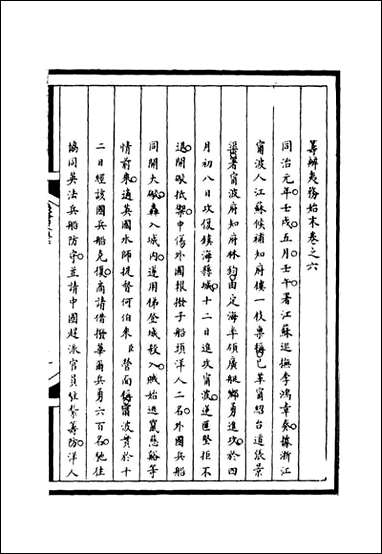 籌辦夷務始末卷之六
同治元年壬戌五月壬午署江蘇巡撫李鴻章奏據浙江
甯波人江蘇候補知府樓一枝稟稱已革甯紹台道張景
渠署甯波府知府林鈞由定海率領廣艇鄉勇進攻於四
月初八日攻復鎮海縣城十二日進攻甯波逆匪堅拒不
退開礮抵禦中傷外國報撥子船頭洋人二名外國兵船
同開大礮轟入城內遂用梯登城殺入賊始逃竄慈谿等
情前來適英國水師提督何伯來臣營面稱甯波實於十
二日經該國兵船克復商請借撥華爾兵勇六百名馳往
協同英法兵船防守並請中國趕派官員往紮籌防洋人